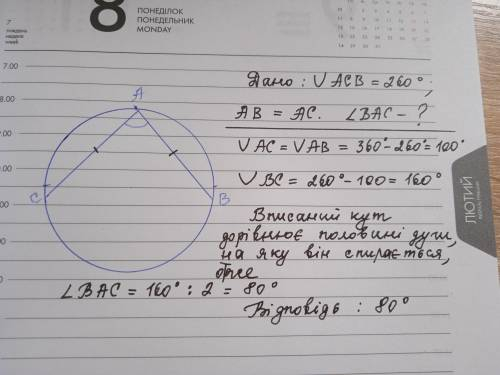 8
ПОНЕДІЛОК
ПОНЕДЕЛЬНИК
MONDAY
7.00
8.00
A
C
B
Дано : ∪ ACB = 260°;
AB = AC. ∠BAC - ?
∪ AC = ∪ AB = 360° - 260° = 100°
∪ BC = 260° - 100 = 160°
Вписаний кут
дорівнює половині дуги,
на яку він спирається,
отже
∠ BAC = 160° : 2 = 80°
Відповідь : 80°
ЛЮТИЙ